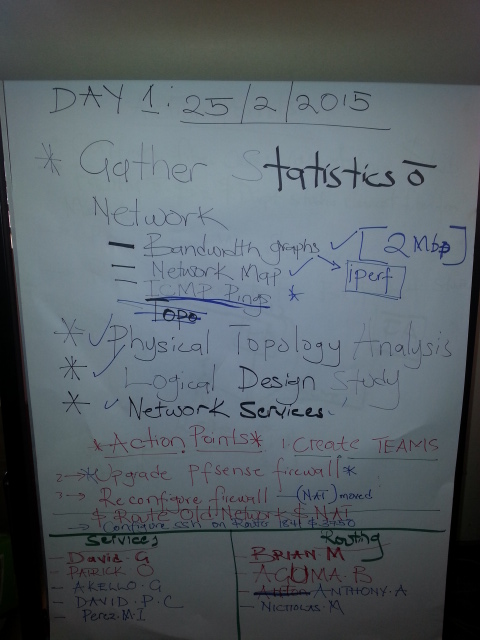 DAY 1: 25/2/2015
* Gather Statistics
Network
— Bandwidth graphs ✓ [2 Mbp]
— Network Map ✓ iperf
— ICMP Pings *
Topo
* ✓ Physical Topology Analysis
* ✓ Logical Design Study
* ✓ Network Services.
* Action Points * 1. Create TEAMS
2 → * Upgrade Pfsense firewall *
3 → Reconfigure firewall — (NAT) moved
$ Route Old Network $ NAT
→ Configure SSH on Route 1841 $ 3450
Services
— David G
— PATRICK O
— AKELLO. G
— DAVID. P. C
— Perez. M. I
Routing
— BRIAN M
— ACUMA. B
— ANTHONY. A
— Nicholas. M